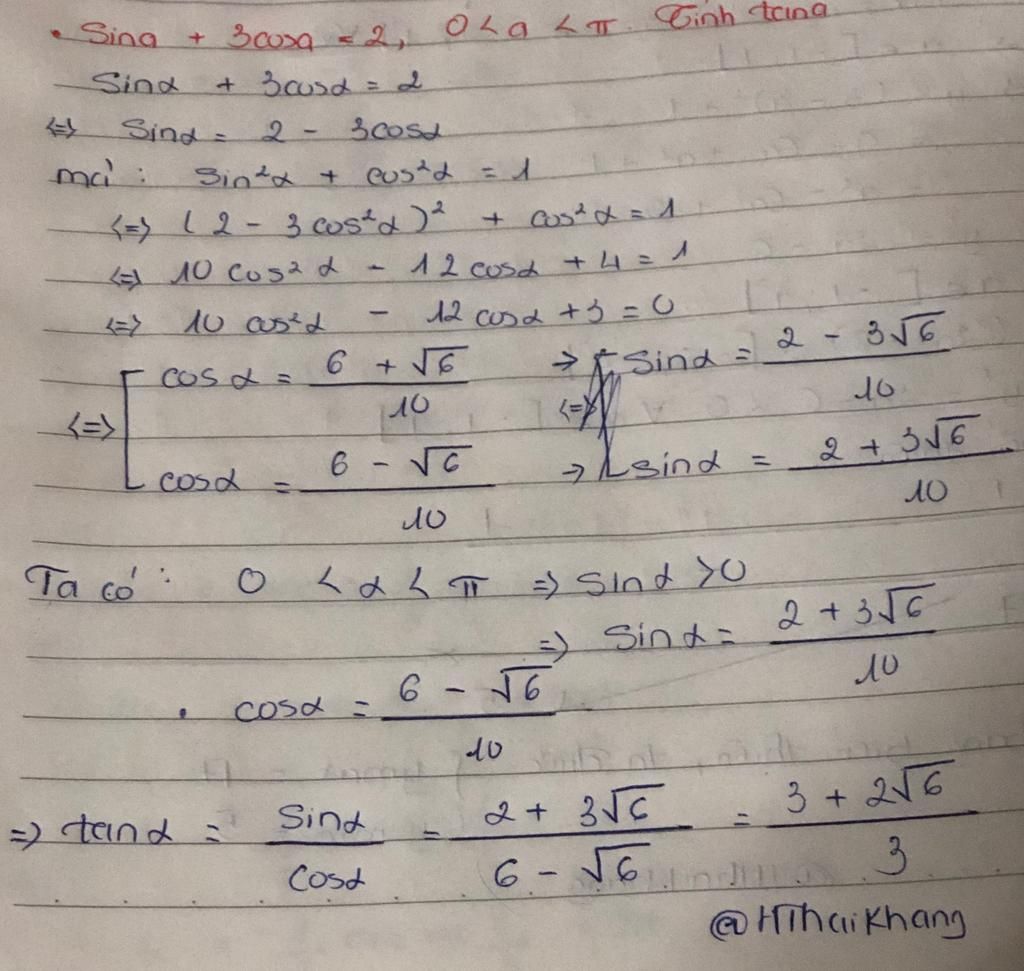 • Sina + 3cosa = 2, 0 < a < π. Tính tana
Sinα + 3cosα = 2
<=> Sinα = 2 - 3cosα
mà: Sin²α + cos²α = 1
<=> (2 - 3cos²α)² + cos²α = 1
<=> 10cos²α - 12cosα + 4 = 1
<=> 10cos²α - 12cosα + 3 = 0
<=> [ cosα = (6 + √6)/10 → Sinα = (2 - 3√6)/10
cosα = (6 - √6)/10 → sinα = (2 + 3√6)/10
Ta có: 0 < α < π => Sinα > 0
=> Sinα = (2 + 3√6)/10
• cosα = (6 - √6)/10
=> tanα = Sinα/Cosα = (2 + 3√6)/(6 - √6) = (3 + 2√6)/3
@HThaiKhang